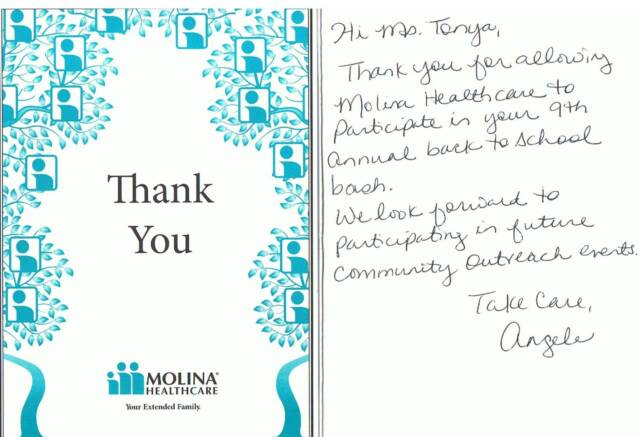 Thank
You
MOLINA®
HEALTHCARE
Your Extended Family.
Hi Ms. Tonya,
Thank you for allowing
Molina Healthcare to
Participate in your 9th
annual back to school
bash.
We look forward to
participating in future
Community Outreach events.
Take Care,
Angele